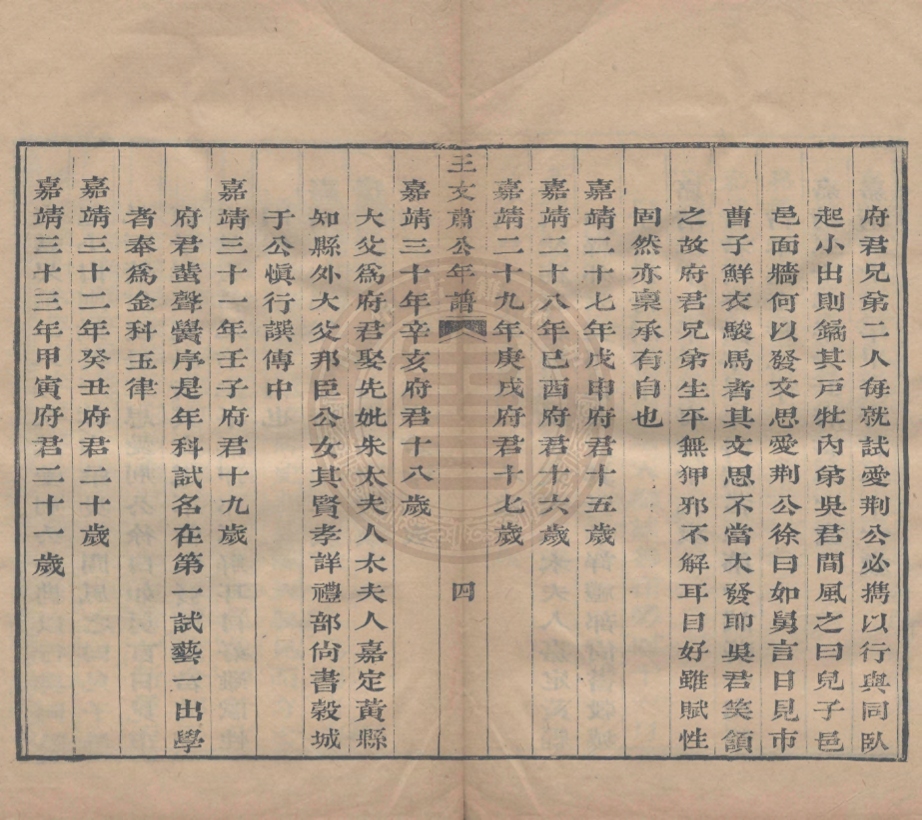 府君兄弟二人每就試愛荆公必攜以行與同臥
起小出則鐍其戸牡內弟吳君間風之曰兒子邑
邑面牆何以發文思愛荆公徐曰如舅言日見市
曹子鮮衣駿馬者其文思不當大發耶吳君笑頷
之故府君兄弟生平無狎邪不解耳目好雖賦性
固然亦稟承有自也
嘉靖二十七年戊申府君十五歲
嘉靖二十八年已酉府君十六歲
嘉靖二十九年庚戌府君十七歲
王文肅公年譜 四
嘉靖三十年辛亥府君十八歲
大父爲府君娶先妣朱太夫人太夫人嘉定黃縣
知縣外大父邦臣公女其賢孝詳禮部尙書穀城
于公慎行譔傳中
嘉靖三十一年壬子府君十九歲
府君蜚聲黌序是年科試名在第一試藝一出學
者奉爲金科玉律
嘉靖三十二年癸丑府君二十歲
嘉靖三十三年甲寅府君二十一歲